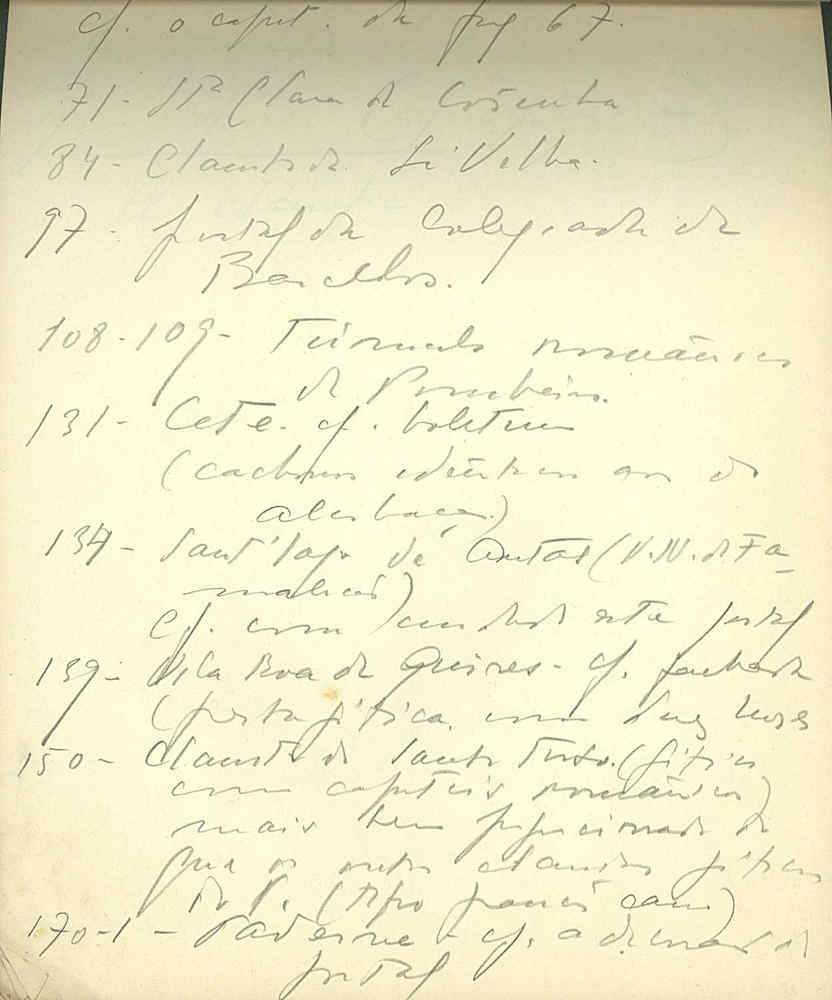 cf. o capit. da pag 67.
71 - Stª Clara de Coimbra
84 - Claustro da Sé Velha.
97 - portal da Colegiada de
Barcelos.
108-109 - Túmulo românico
de Pombeiro.
131 - Cete. cf. boletim
(cachorros idênticos aos de
)
134 - Sant'Iago de Antas (V.N. de Fa-
malicão)
cf. com cuidado este portal
139 - Vila Boa de Quires - cf. fachada
(porta gótica com duas
150 - Claustro de Santo Tirso. (gótico
com capiteis românicos)
mais bem proporcionado do
que os outros claustros góticos
de P. (tipo franciscano)
170-1 - Paderne - cf. a do
portal